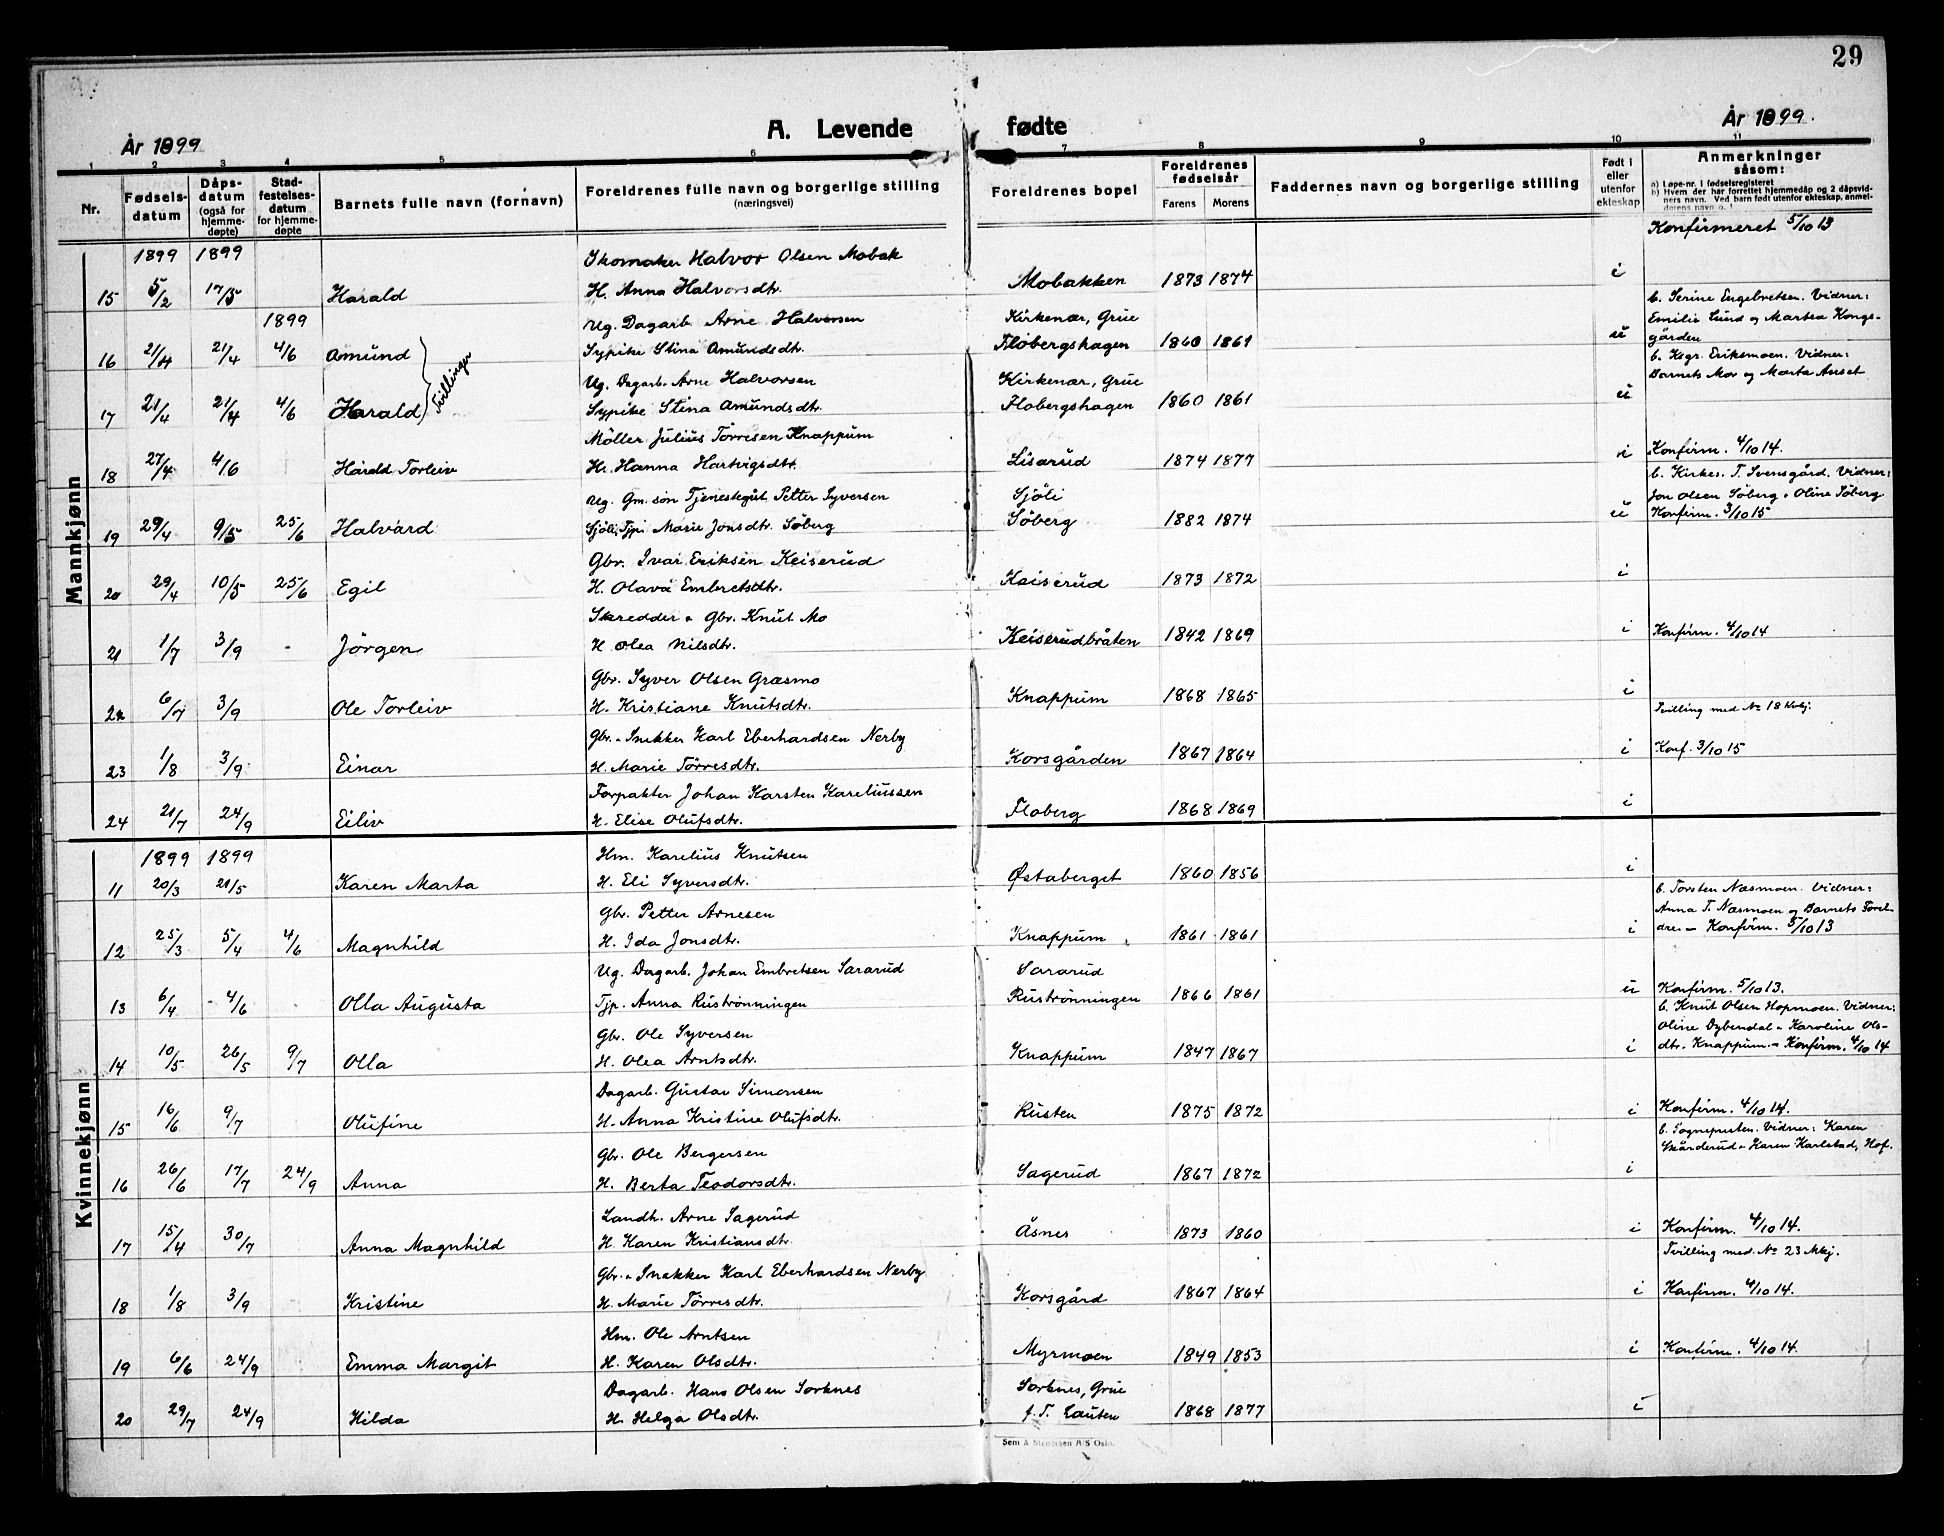 29
År 1899
A. Levende fødte
År 1899.
1 2 3 4 5 6 7 8 9 10 11
Nr.
Fødsels-datum
Dåps-datum (også for hjemme-døpte)
Stad-festelses-datum for hjemme-døpte
Barnets fulle navn (fornavn)
Foreldrenes fulle navn og borgerlige stilling (næringsvei)
Foreldrenes bopel
Foreldrenes fødselsår
Farens Morens
Faddernes navn og borgerlige stilling
Født i eller utenfor ekteskap
Anmerkninger såsom:
a) Løpe-nr. i fødselsregisteret
b) Hvem der har forrettet hjemmedåp og 2 dåpsvid-
ners navn. Ved barn født utenfor ekteskap, anmel-
derens navn o. l.
Mannkjønn
1899 1899 Skomaker Halvor Olsen Mobak Konfirmeret 5/10 13
15 5/2 17/5 Harald H. Anna Halvorsdtr. Mobakken 1873 1874 i
1899 Ug. Dagarb. Arne Halvorsen Kirkenær, Grue b. Serine Engebretsen. Vidner:
Emilie Lund og Martea Kongs-
16 21/4 21/4 4/6 Amund Sypike Stina Amundsdtr. Flobergshagen 1860 1861 u gården
Tvillinger
Ug. Dagarb. Arne Halvorsen Kirkenær, Grue b. Kgr. Erikmoen. Vidner:
Barnets Mor og Marta Aaset
17 21/4 21/4 4/6 Harald Sypike Stina Amundsdtr. Flobergshagen 1860 1861 u
Möller Julius Törresen Knappum
18 27/4 4/6 Harald Torleiv H. Hanna Hartvigsdtr. Lisarud 1874 1877 i Konfirm. 4/10 14.
Ug. Gm. søn Tjenestegut Petter Syversen Sjöli b. Kirkes. T. Svensgård. Vidner:
Jon Olsen Söberg + Oline Söberg
19 29/4 9/5 25/6 Halvard Sjöli, Tjp. Marie Jonsdtr. Söberg Söberg 1882 1874 u Konfirm. 3/10 15
Gbr. Ivar Eriksen Keiserud
20 29/4 10/5 25/6 Egil H. Olava Embretsdtr. Kaiserud 1873 1872 i
Skredder + Gbr. Knut Mo
21 1/7 3/9 - Jörgen H. Olea Nilsdtr. Keiserudbråten 1842 1869 i Konfirm. 4/10 14
Gbr. Syver Olsen Græsmo
22 6/7 3/9 Ole Torleiv H. Kristiane Knutsdtr. Knappum 1868 1865 i
Tvilling med No 18 Kvkj.
Gbr. + Snekker Karl Eberhardsen Nerby
23 1/8 3/9 Einar H. Marie Törresdtr. Korsgården 1867 1864 i Konf. 3/10 15
Forpakter Johan Karsten Kareliussen
24 21/7 24/9 Eiliv H. Elise Olufsdtr. Floberg 1868 1869 i
Kvinnekjønn
1899 1899 Hm. Karelius Knutsen
11 20/3 21/5 Karen Marta H. Eli Syversdtr. Østaberget 1860 1856 i
Gbr. Petter Arnesen b. Torsten Næsmoen. Vidner:
Anna T. Næsmoen og Barnets Forel-
12 25/3 5/4 4/6 Magnhild H. Ida Jonsdtr. Knappum 1861 1861 i dre. - Konfirm. 5/10 13
Ug. Dagarb. Johan Embretsen Sararud Sararud
13 6/4 4/6 Olla Augusta Tjp. Anna Ruströnningen Ruströnningen 1866 1861 u Konfirm. 5/10 13.
Gbr. Ole Syversen b. Knut Olsen Hopmoen. Vidner:
Oline Dybendal + Karoline Ols-
14 10/5 26/5 9/7 Olla H. Olea Arntsdtr. Knappum 1847 1867 i dtr. Knappum. - Konfirm. 4/10 14
Dagarb. Gustav Simonsen
15 16/6 9/7 Olufine H. Anna Kristine Olufsdtr. Rusten 1875 1872 i Konfirm. 4/10 14.
Gbr. Ole Bergersen b. Sogneprsten. Vidner: Karen
Skårderud + Karen Karlstad, Hof.
16 26/6 17/7 24/9 Anna H. Berta Teodorsdtr. Sagerud 1867 1872 i
Landh. Arne Sagerud
17 15/4 30/7 Anna Magnhild H. Karen Kristiansdtr. Åsnes 1873 1860 i Konfirm. 4/10 14.
Tvilling med No 23 Mkj.
Gbr. + Snekker Karl Eberhardsen Nerby
18 1/8 3/9 Kristine H. Marie Törresdtr. Korsgård 1867 1864 i Konfirm. 4/10 14.
Hm. Ole Arntsen
19 6/6 24/9 Emma Margit H. Karen Olsdtr. Myrmoen 1849 1853 i Konfirm. 4/10 14.
Dagarb. Hans Olsen Sorknes Sorknes, Grue
20 29/7 24/9 Hilda H. Helga Olsdtr. f. T. Lauten 1868 1877 i
Sem & Stenersen A/S Oslo.